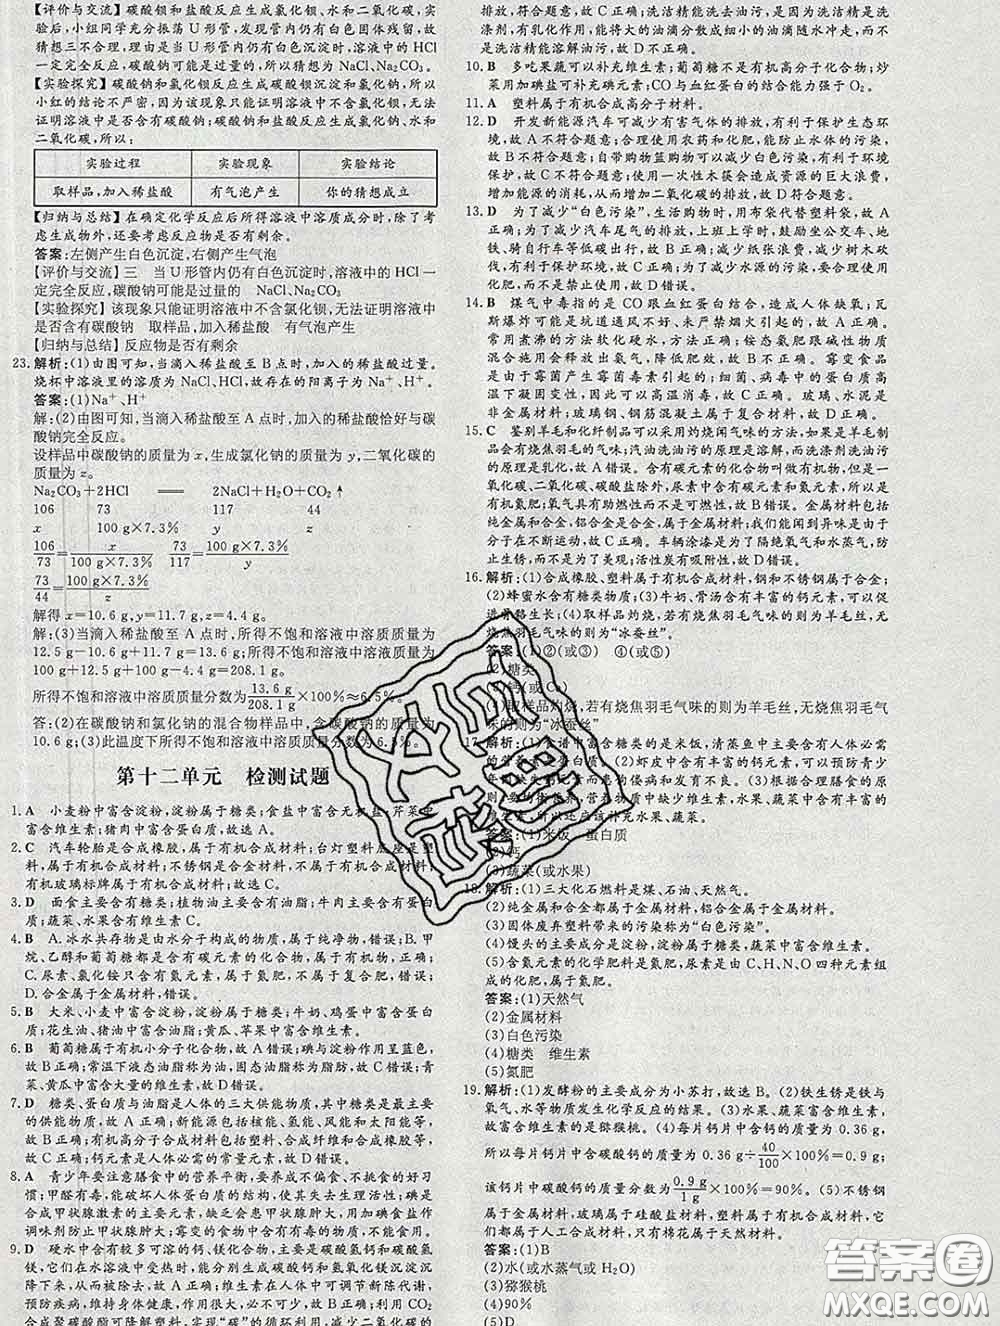 【评价与交流】碳酸钡和盐酸反应生成氯化钡、水和二氧化碳,实验
后,小组同学充分振荡 U 形管,发现管内仍有白色固体残留,故
猜想三不合理,理由是当 U 形管内仍有白色沉淀时,溶液中的 HCl
一定完全反应,碳酸钠可能是过量的,所以猜想三为 NaCl、Na₂CO₃
【实验探究】碳酸钠和氯化钡反应生成碳酸钡沉淀和氯化钠,所以
小红的结论不严密,因为该现象只能证明溶液中不含氯化钡,无法
证明溶液中是否含有碳酸钠;碳酸钠和盐酸反应生成氯化钠、水和
二氧化碳,所以:
实验过程 实验现象 实验结论
取样品,加入稀盐酸 有气泡产生 你的猜想成立
【归纳与总结】在确定化学反应后所得溶液中溶质成分时,除了考
虑生成物外,还要考虑反应物是否有剩余。
答案:左侧产生白色沉淀,右侧产生气泡
【评价与交流】三 当 U 形管内仍有白色沉淀时,溶液中的 HCl 一
定完全反应,碳酸钠可能是过量的 NaCl、Na₂CO₃
【实验探究】该现象只能证明溶液中不含氯化钡,无法证明溶液中
是否含有碳酸钠 取样品,加入稀盐酸 有气泡产生
【归纳与总结】反应物是否有剩余
23. 解析:(1)由图可知,当滴入稀盐酸至 B 点时,加入的稀盐酸过量。
烧杯中溶液里的溶质为 NaCl、HCl,故存在的阳离子为 Na⁺、H⁺。
答案:(1)Na⁺、H⁺
解:(2)由图可知,当滴入稀盐酸至 A 点时,加入的稀盐酸恰好与碳
酸钠完全反应。
设样品中碳酸钠的质量为 x,生成氯化钠的质量为 y,二氧化碳的
质量为 z。
Na₂CO₃+2HCl ══ 2NaCl+H₂O+CO₂↑
106 73 117 44
x 100 g×7.3% y z
106/73=x/(100 g×7.3%) 73/117=(100 g×7.3%)/y
73/44=(100 g×7.3%)/z
解得 x=10.6 g,y=11.7 g,z=4.4 g。
解:(3)当滴入稀盐酸至 A 点时,所得不饱和溶液中溶质质量为
12.5 g-10.6 g+11.7 g=13.6 g;所得不饱和溶液的质量为
100 g+12.5 g+100 g-4.4 g=208.1 g;
所得不饱和溶液中溶质质量分数为 13.6 g/208.1 g×100%≈6.5%。
答:(2)在碳酸钠和氯化钠的混合物样品中,含碳酸钠的质量为
10.6 g;(3)此温度下所得不饱和溶液中溶质质量分数为 6.5%。
第十二单元 检测试题
1. A 小麦粉中富含淀粉,淀粉属于糖类;食盐中富含无机盐;芹菜中
富含维生素;猪肉中富含蛋白质,故选 A。
2. C 汽车轮胎是合成橡胶,属于有机合成材料;台灯塑料底座是塑
料,属于有机合成材料;不锈钢是合金材料,不属于有机合成材料;
有机玻璃标牌属于有机合成材料;故选 C。
3. D 面食主要含有糖类;植物油主要含有油脂;牛肉主要含有蛋白
质。
4. B A.冰水共存物是由水分子构成的物质,属于纯净物,错误;B.甲
烷、乙醇和葡萄糖都是含有碳元素的化合物,属于有机物,正确;
C.尿素、氯化铵只含有氮元素,属于氮肥,不属于复合肥,错误;
D.合金属于金属材料,错误。
5. B 大米、小麦中富含淀粉,淀粉属于糖类;牛奶、鸡蛋中富含蛋白
质;花生油、猪油中富含油脂;黄瓜、苹果中富含维生素。
6. B 葡萄糖属于有机小分子化合物,故 A 错误;碘与淀粉作用呈蓝色,
故 B 正确;常温下液态油脂称为油,固态油脂称为脂肪,故 C 错误;青
菜、黄瓜中富含维生素,故 D 错误。
7. D 糖类、蛋白质与油脂是人体的三大供能物质,其中糖类是最主要
的供能物质,故 A 正确;新能源包括核能、氢能、风能和太阳能等,
故 B 正确;有机高分子合成材料包括塑料、合成纤维和合成橡胶等,
故 C 正确;钙元素是人体必需的常量元素,故 D 错误。
8. A 青少年要注意膳食中的营养平衡,要养成不偏食、不挑食的好习
惯;甲醛有毒,能破坏人体蛋白质的结构,使其失去生理活性;碘是
合成甲状腺激素的主要成分,缺乏会使甲状腺肿大,食用加碘盐作
调味剂防止甲状腺肿大;霉变的食物中含有有毒的物质,不可食用。
9. D 硬水中含有较多可溶的钙、镁化合物,主要是碳酸氢钙和碳酸氢
镁,它们在水中受热时,能分别生成碳酸钙沉淀和氢氧化镁沉淀沉
降下来,故 A 正确;维生素、水和无机盐在人体中可调节新陈代谢,
预防疾病、维持身体健康,作用很大,故 B 正确;利用 CO₂
合成聚碳酸酯可降解塑料,实现“碳”的循环利用,减少二氧化碳的
排放,符合低碳理念,故 C 正确;洗洁精能洗去油污,是因为洗
涤剂,有乳化作用,能将大的油滴分散成细小的油滴随水冲走,而不
是洗洁精能溶解油污,故 D 不正确。
10. B 多吃果蔬可以补充维生素;葡萄糖不是有机高分子化合物;炒
菜用加碘盐可补充碘元素;CO 与血红蛋白的结合能力强于 O₂。
11. A 塑料属于有机合成高分子材料。
12. D 开发新能源汽车可减少有害气体的排放,有利于保护生态环
境,故 A 不符合题意;合理使用农药和化肥,能防止水体的污染,
故 B 不符合题意;自带购物篮购物可以减少白色污染,有利于环境
保护,故 C 不符合题意;一次性木筷会造成资源的巨大浪费,
增加能源的消耗,从而增加二氧化碳的排放,故 D 符合题意。
13. D 为了减少“白色污染”,生活购物时,用布袋代替塑料袋,故 A
正确;为了减少汽车尾气的排放,上班上学时,鼓励坐公交车、地
铁,骑自行车等低碳出行,故 B 正确;减少纸张浪费,减少树木砍
伐,有利于保护环境,故 C 正确;为了减少水源的污染,要合理使用
化肥,而不是禁止使用,故 D 错误。
14. B 煤气中毒指的是 CO 跟血红蛋白结合,造成人体缺氧;瓦
斯爆炸可能是坑道通风不好、未严禁烟火引起的,故 A 正确。
常用煮沸的方法软化硬水,方法正确;铵态氮肥跟碱性物质
混合施用会释放出氨气,降低肥效,故 B 不正确。霉变食品是
由于霉菌产生霉菌毒素引起的;细菌、病毒中的蛋白质在高
温下凝固变性,因此可以高温消毒,故 C 正确。玻璃、水泥是
非金属材料;玻璃钢、钢筋混凝土属于复合材料,故 D 正确。
15. C 鉴别羊毛和化纤制品可以采用灼烧闻气味的方法,如果是羊毛制品
会有烧焦羽毛的气味;汽油洗油污的原理是溶解,而洗涤剂洗油污
的原理是乳化,故 A 错误。含有碳元素的化合物叫做有机物,碳
的氧化物、碳酸、碳酸盐除外,尿素中含有碳元素和氮元素,所以是
有机氮肥;氧气具有助燃性而不具有可燃性,故 B 错误。金属材料包括
纯金属和合金,铝合金是合金,属于金属材料;我们能闻到异味是由于
分子在不断运动,故 C 正确。车辆涂漆是为了隔绝氧气和水蒸气,防
止生锈,而不是为了美观;活性炭有吸附性,故 D 错误。
16. 解析:(1)合成橡胶、塑料属于有机合成材料,钢和不锈钢属于合金;
(2)蜂蜜水含有糖类物质;(3)牛奶、骨汤含有丰富的钙元素,可以促
进骨骼生长;(4)取样品灼烧,若有烧焦羽毛气味的则为羊毛丝,无
烧焦羽毛气味的则为“冰蚕丝”。
答案:(1)②(或③) ④(或⑤)
(2)糖类
(3)钙(或 Ca)
(4)取样品灼烧,若有烧焦羽毛气味的则为羊毛丝,无烧焦羽毛气
味的则为“冰蚕丝”
17. 解析:(1)食谱中富含糖类的是米饭,清蒸鱼中主要含有人体必需
的营养物质是蛋白质。(2)虾皮中富含丰富的钙元素,可以预防青
少年佝偻病,及老年人的骨质疏松。(3)根据合理膳食的
原则,营养物质中缺少维生素,水果、蔬菜中富含维
生素,所以还应该补充水果、蔬菜。
答案:(1)米饭 蛋白质
(2)钙
(3)蔬菜(或水果)
18. 解析:(1)三大化石燃料是煤、石油、天然气。
(2)纯金属和合金都属于金属材料,铝合金属于金属材料。
(3)固体废弃塑料带来的污染称为“白色污染”。
(4)馒头的主要成分是淀粉,淀粉属于糖类,蔬菜中富含维生素。
(5)含氮元素的化学肥料是氮肥,尿素是由 C、H、N、O 四种元素组
成的化肥,属于氮肥。
答案:(1)天然气
(2)金属材料
(3)白色污染
(4)糖类 维生素
(5)氮肥
19. 解析:(1)发酵粉的主要成分为小苏打,故选 B。(2)铁生锈是铁与
氧气、水等物质发生化学反应的结果。(3)水果、蔬菜富含维生素,
故富含维生素的是猕猴桃。(4)每片钙片中含钙的质量为 0.36 g,
所以每片钙片中含碳酸钙的质量为 0.36 g÷40/100×100%=0.9 g,
该钙片中碳酸钙的质量分数为 0.9 g/1 g×100%=90%。(5)不锈钢
属于金属材料,玻璃属于硅酸盐材料,塑料属于有机合成材料,它
们都属于人工合成材料,只有棉花属于天然材料。
答案:(1)B
(2)水(或水蒸气或 H₂O)
(3)猕猴桃
(4)90%
(5)D
答案圈
MXQE.COM